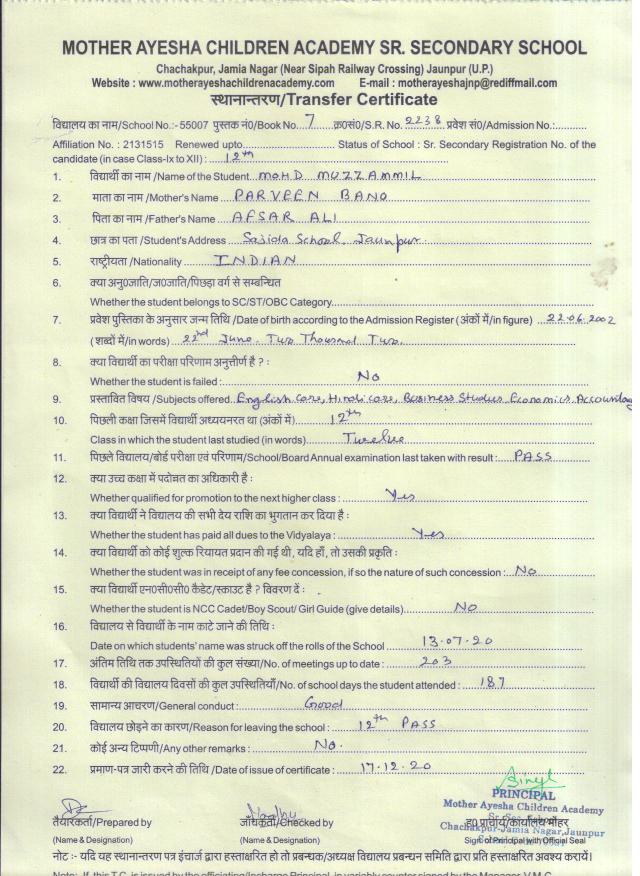 MOTHER AYESHA CHILDREN ACADEMY SR. SECONDARY SCHOOL
Chachakpur, Jamia Nagar (Near Sipah Railway Crossing) Jaunpur (U.P.)
Website : www.motherayeshachildrenacademy.com E-mail : motherayeshajnp@rediffmail.com
स्थानान्तरण/Transfer Certificate
विद्यालय का नाम/School No.:- 55007 पुस्तक नं0/Book No. 7 क्र०सं०/S.R. No. 2238 प्रवेश सं0/Admission No.:
Affiliation No. : 2131515 Renewed upto Status of School : Sr. Secondary Registration No. of the
candidate (in case Class-Ix to XII) : 12th
1. विद्यार्थी का नाम /Name of the Student MOHD MUZZAMMIL
2. माता का नाम /Mother's Name PARVEEN BANO
3. पिता का नाम /Father's Name AFSAR ALI
4. छात्र का पता /Student's Address Sajida School, Jaunpur.
5. राष्ट्रीयता /Nationality INDIAN
6. क्या अनु0जाति/ज0जाति/पिछड़ा वर्ग से सम्बन्धित
Whether the student belongs to SC/ST/OBC Category
7. प्रवेश पुस्तिका के अनुसार जन्म तिथि /Date of birth according to the Admission Register (अंकों में/in figure) 22.06.2002
(शब्दों में/in words) 22nd June. Two Thousand Two.
8. क्या विद्यार्थी का परीक्षा परिणाम अनुत्तीर्ण है ? :
Whether the student is failed : No
9. प्रस्तावित विषय /Subjects offered English Core, Hindi core, Business Studies Economics, Accountancy
10. पिछली कक्षा जिसमें विद्यार्थी अध्ययनरत था (अंकों में) 12th
Class in which the student last studied (in words) Twelve
11. पिछले विद्यालय/बोर्ड परीक्षा एवं परिणाम/School/Board Annual examination last taken with result : PASS
12. क्या उच्च कक्षा में पदोन्नत का अधिकारी है :
Whether qualified for promotion to the next higher class : Yes
13. क्या विद्यार्थी ने विद्यालय की सभी देय राशि का भुगतान कर दिया है :
Whether the student has paid all dues to the Vidyalaya : Yes
14. क्या विद्यार्थी को कोई शुल्क रियायत प्रदान की गई थी, यदि हाँ, तो उसकी प्रकृति :
Whether the student was in receipt of any fee concession, if so the nature of such concession : No
15. क्या विद्यार्थी एन0सी0सी0 कैडेट/स्काउट है ? विवरण दें :
Whether the student is NCC Cadet/Boy Scout/ Girl Guide (give details) No
16. विद्यालय से विद्यार्थी के नाम काटे जाने की तिथि :
Date on which students' name was struck off the rolls of the School 13.07.20
17. अंतिम तिथि तक उपस्थितियों की कुल संख्या/No. of meetings up to date : 203
18. विद्यार्थी की विद्यालय दिवसों की कुल उपस्थितियाँ/No. of school days the student attended : 187
19. सामान्य आचरण/General conduct : Good
20. विद्यालय छोड़ने का कारण/Reason for leaving the school : 12th PASS
21. कोई अन्य टिप्पणी/Any other remarks : No.
22. प्रमाण-पत्र जारी करने की तिथि /Date of issue of certificate : 17.12.20
PRINCIPAL
Mother Ayesha Children Academy
Chachakpur-Jamia Nagar, Jaunpur
तैयारकर्ता/Prepared by जांचकर्ता/Checked by ह0 प्राचार्य/कार्यालय मोहर
(Name & Designation) (Name & Designation) Sign of Principal with Official Seal
नोट :- यदि यह स्थानान्तरण पत्र इंचार्ज द्वारा हस्ताक्षरित हो तो प्रबन्धक/अध्यक्ष विद्यालय प्रबन्धन समिति द्वारा प्रति हस्ताक्षरित अवश्य करायें।
Note: If, this T.C. is issued by the officiating/Incharge Principal, is variably counter signed by the Manager, V.M.C.